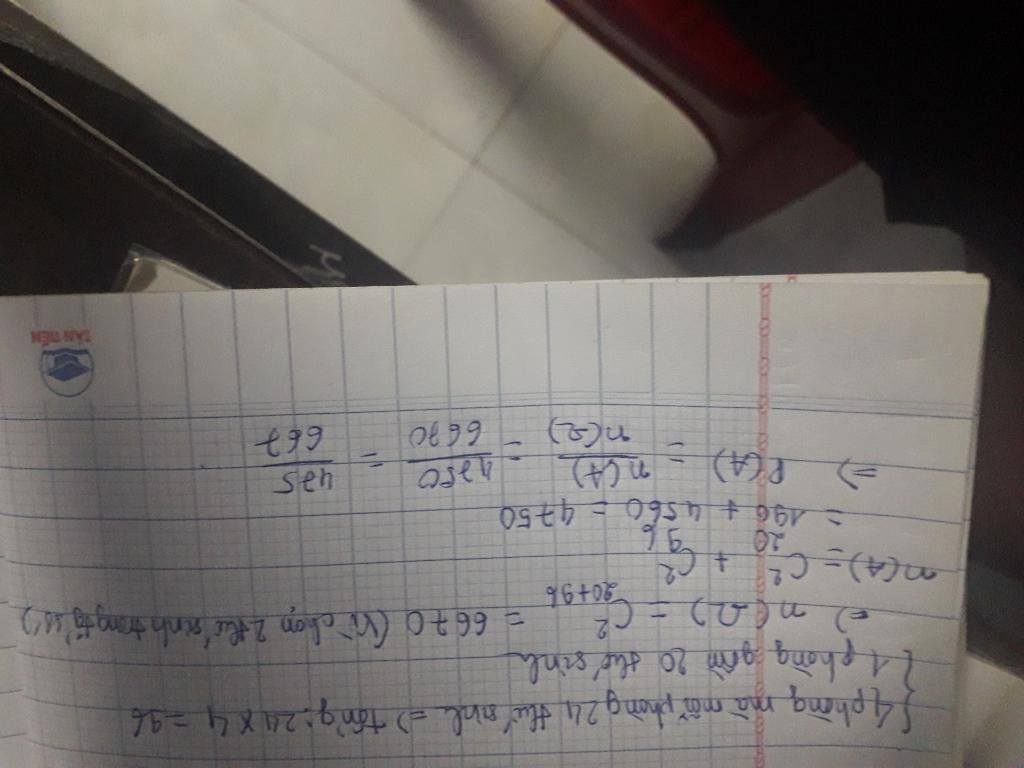 { 4 phòng mà mỗi phòng 24 thí sinh => tổng: 24 x 4 = 96
{ 1 phòng gồm 20 thí sinh
=) n(Ω) = C²₂₀₊₉₆ = 6670 (Vì chọn 2 thí sinh trong tổng số)
n(A) = C²₂₀ + C²₉₆
= 190 + 4560 = 4750
=> P(A) = n(A)/n(Ω) = 4750/6670 = 475/667
TÂN TIẾN